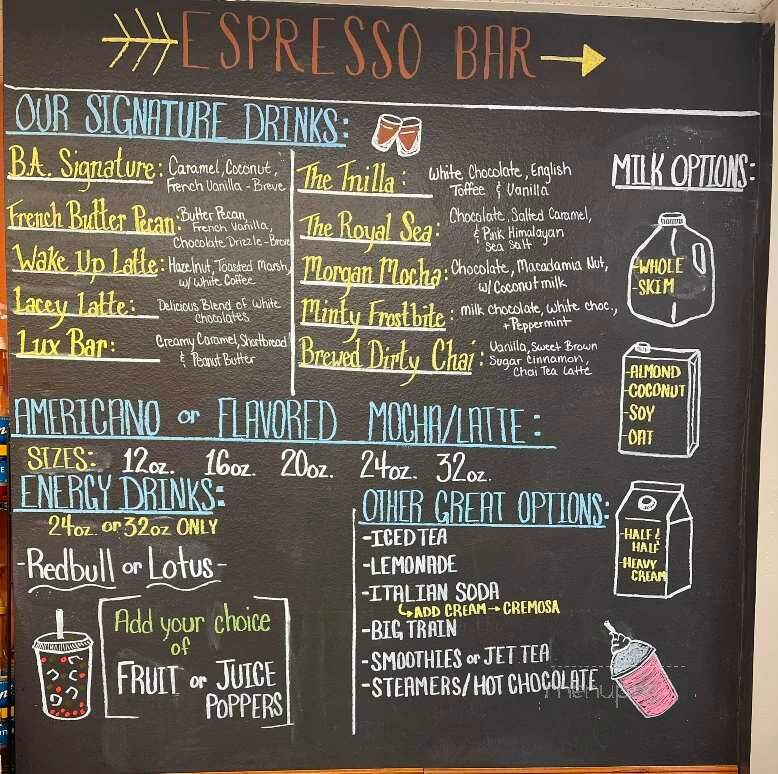 ESPRESSO BAR
OUR SIGNATURE DRINKS:
B.A. Signature: Caramel, Coconut,
French Vanilla - Breve
French Butter Pecan: Butter Pecan,
French Vanilla,
Chocolate Drizzle - Breve
Wake Up Latte: Hazelnut, Toasted Marsh,
w/ White Coffee
Lacey Latte: Delicious Blend of White
Chocolates
Lux Bar: Creamy Caramel, Shortbread
& Peanut Butter
The Tnilla: White Chocolate, English
Toffee & Vanilla
The Royal Sea: Chocolate, Salted Caramel,
& Pink Himalayan
Sea Salt
Morgan Mocha: Chocolate, Macadamia Nut,
w/ Coconut milk
Minty Frostbite: milk chocolate, white choc.,
+ Peppermint
Brewed Dirty Chai: Vanilla, Sweet Brown
Sugar Cinnamon,
Chai Tea Latte
MILK OPTIONS:
-WHOLE
-SKIM
-ALMOND
-COCONUT
-SOY
-OAT
-HALF &
HALF
-HEAVY
CREAM
AMERICANO or FLAVORED MOCHA/LATTE:
SIZES: 12oz. 16oz. 20oz. 24oz. 32oz.
ENERGY DRINKS:
24oz. or 32oz ONLY
-Redbull or Lotus-
Add your choice
of
FRUIT or JUICE
POPPERS
OTHER GREAT OPTIONS:
-ICED TEA
-LEMONADE
-ITALIAN SODA
↳ADD CREAM→CREMOSA
-BIG TRAIN
-SMOOTHIES or JET TEA
-STEAMERS/HOT CHOCOLATE